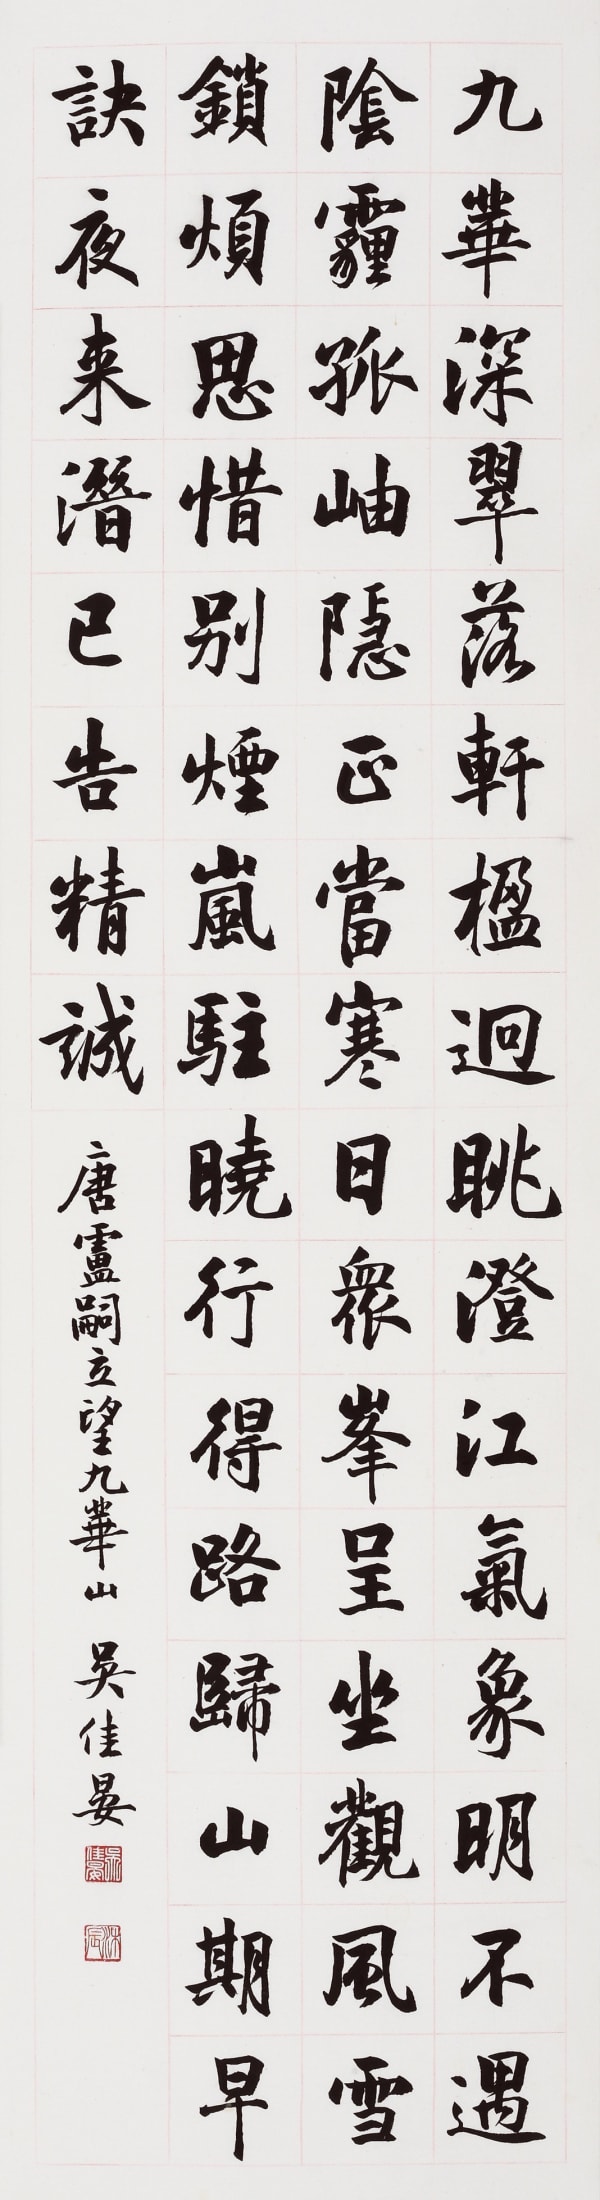 九華深翠落軒楹迥眺澄江氣象明不遇
陰霾孤岫隱正當寒日眾峯呈坐觀風雪
鎖煩思惜別煙嵐駐曉行得路歸山期早
訣夜来潛已告精誠
唐盧嗣立望九華山 吳佳晏